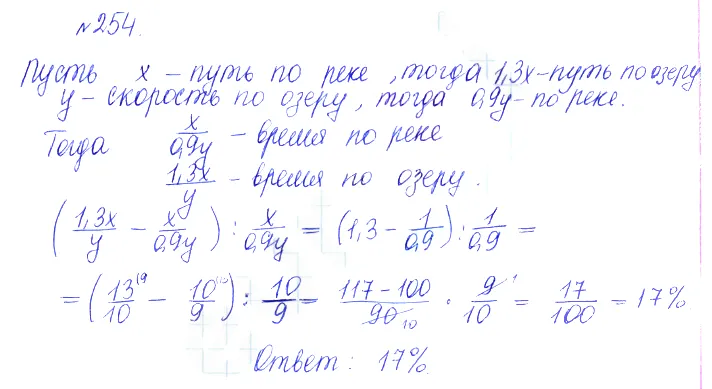 №254.
Пусть x – путь по реке, тогда 1,3x – путь по озеру
y – скорость по озеру, тогда 0,9y – по реке.
Тогда x/0,9y – время по реке
1,3x/y – время по озеру.
(1,3x/y – x/0,9y) : x/0,9y = (1,3 – 1/0,9) : 1/0,9 =
= (13/10 – 10/9) : 10/9 = 117–100/90 · 9/10 = 17/100 = 17%
Ответ: 17%.